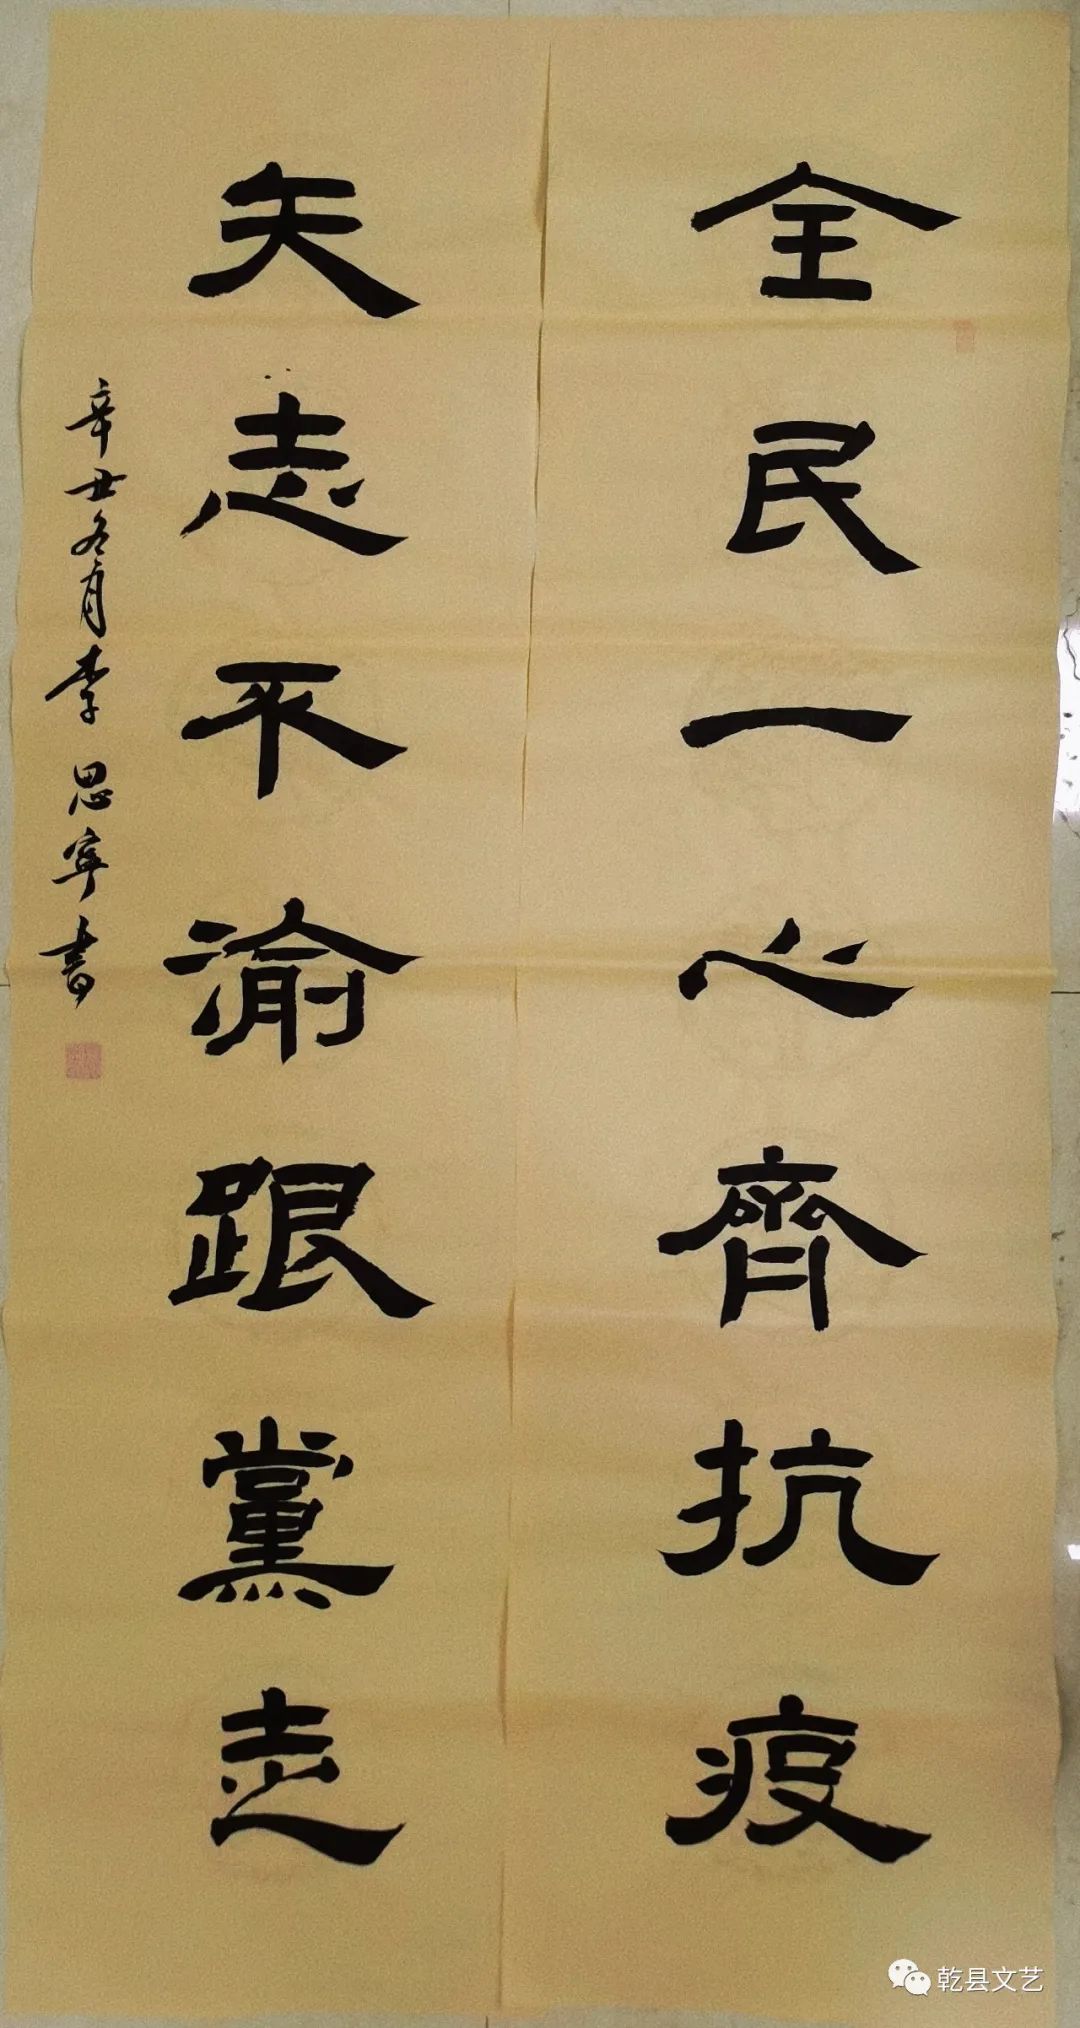 全民一心齊抗疫
矢志不渝跟黨走
辛丑冬月李思寧書
乾县文艺